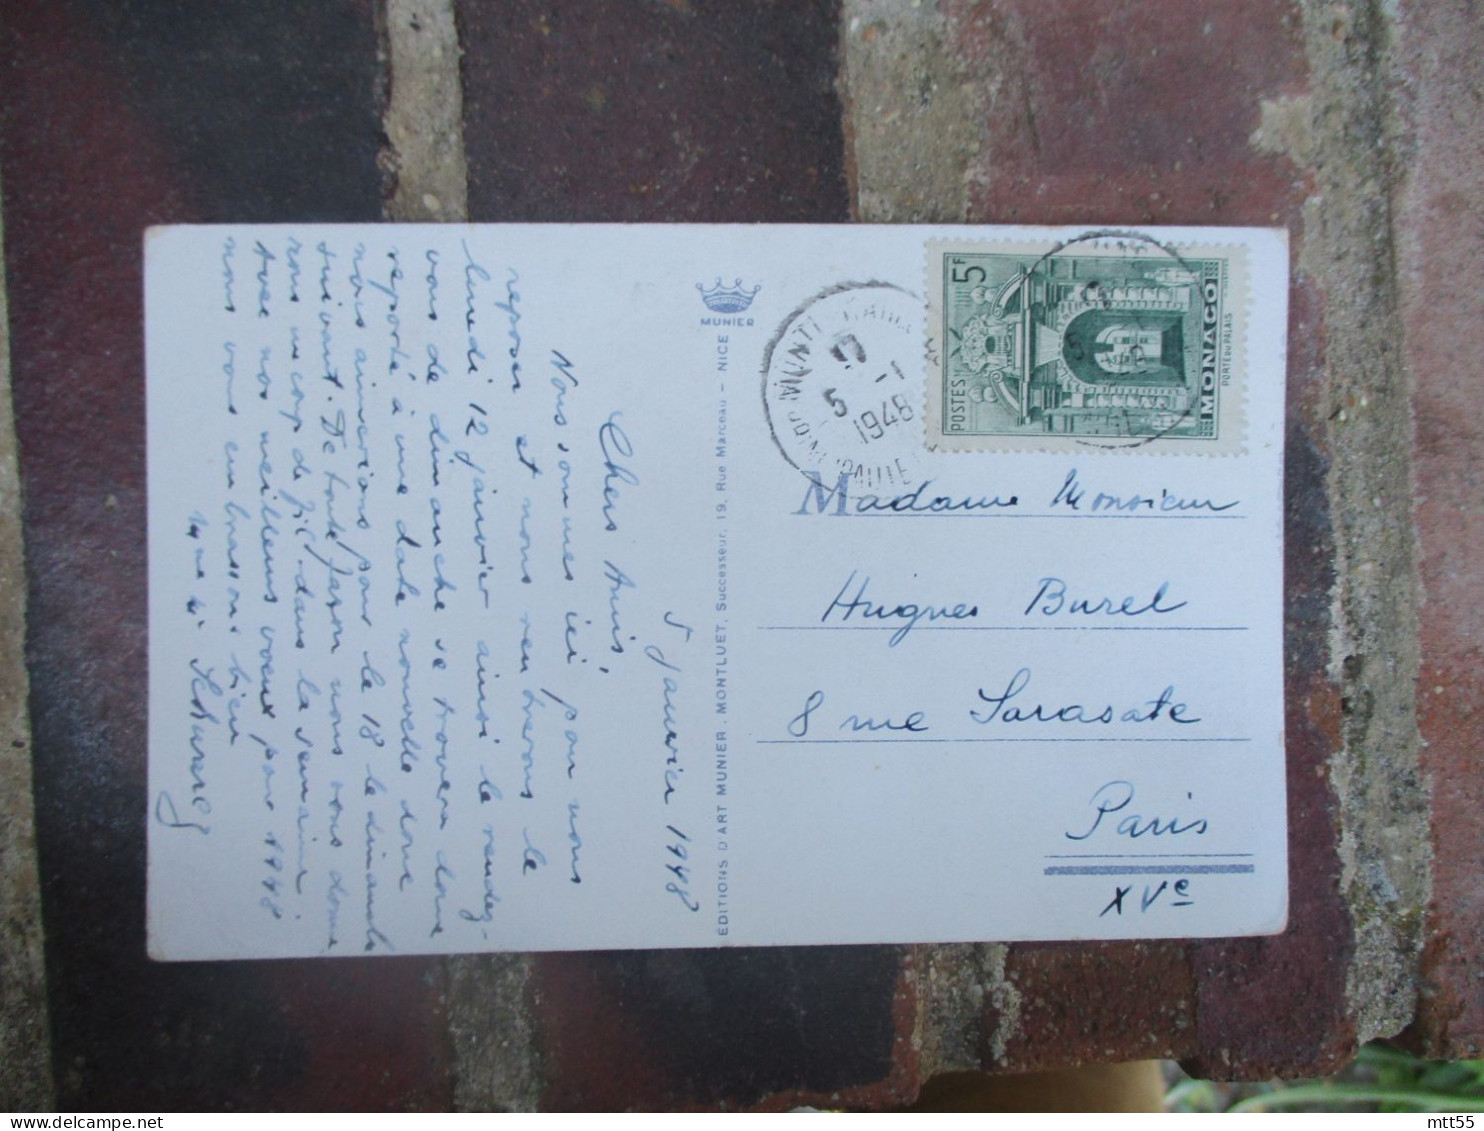 5 janvier 1948
Chers Amis,
Nous sommes ici pour nous
reposer et nous rentrerons le
lundi 12 janvier ainsi le rendez-
vous de dimanche se trouvera donc
reporté à une date nouvelle donc
nous aimerions pour le 18 le dimanche
suivant. De toute façon nous vous donne
rons un coup de fil dans la semaine
Avec nos meilleurs voeux pour 1948
nous vous embrassons bien
MUNIER
ÉDITIONS D'ART MUNIER. MONTLUET, Successeur, 19, Rue Marceau - NICE
MONTE CARLO
17
5 -1
1948
POSTES 5F
MONACO
PORTE DU PALAIS
Madame Monsieur
Hugues Burel
8 rue Sarasate
Paris
XVe
mtt55